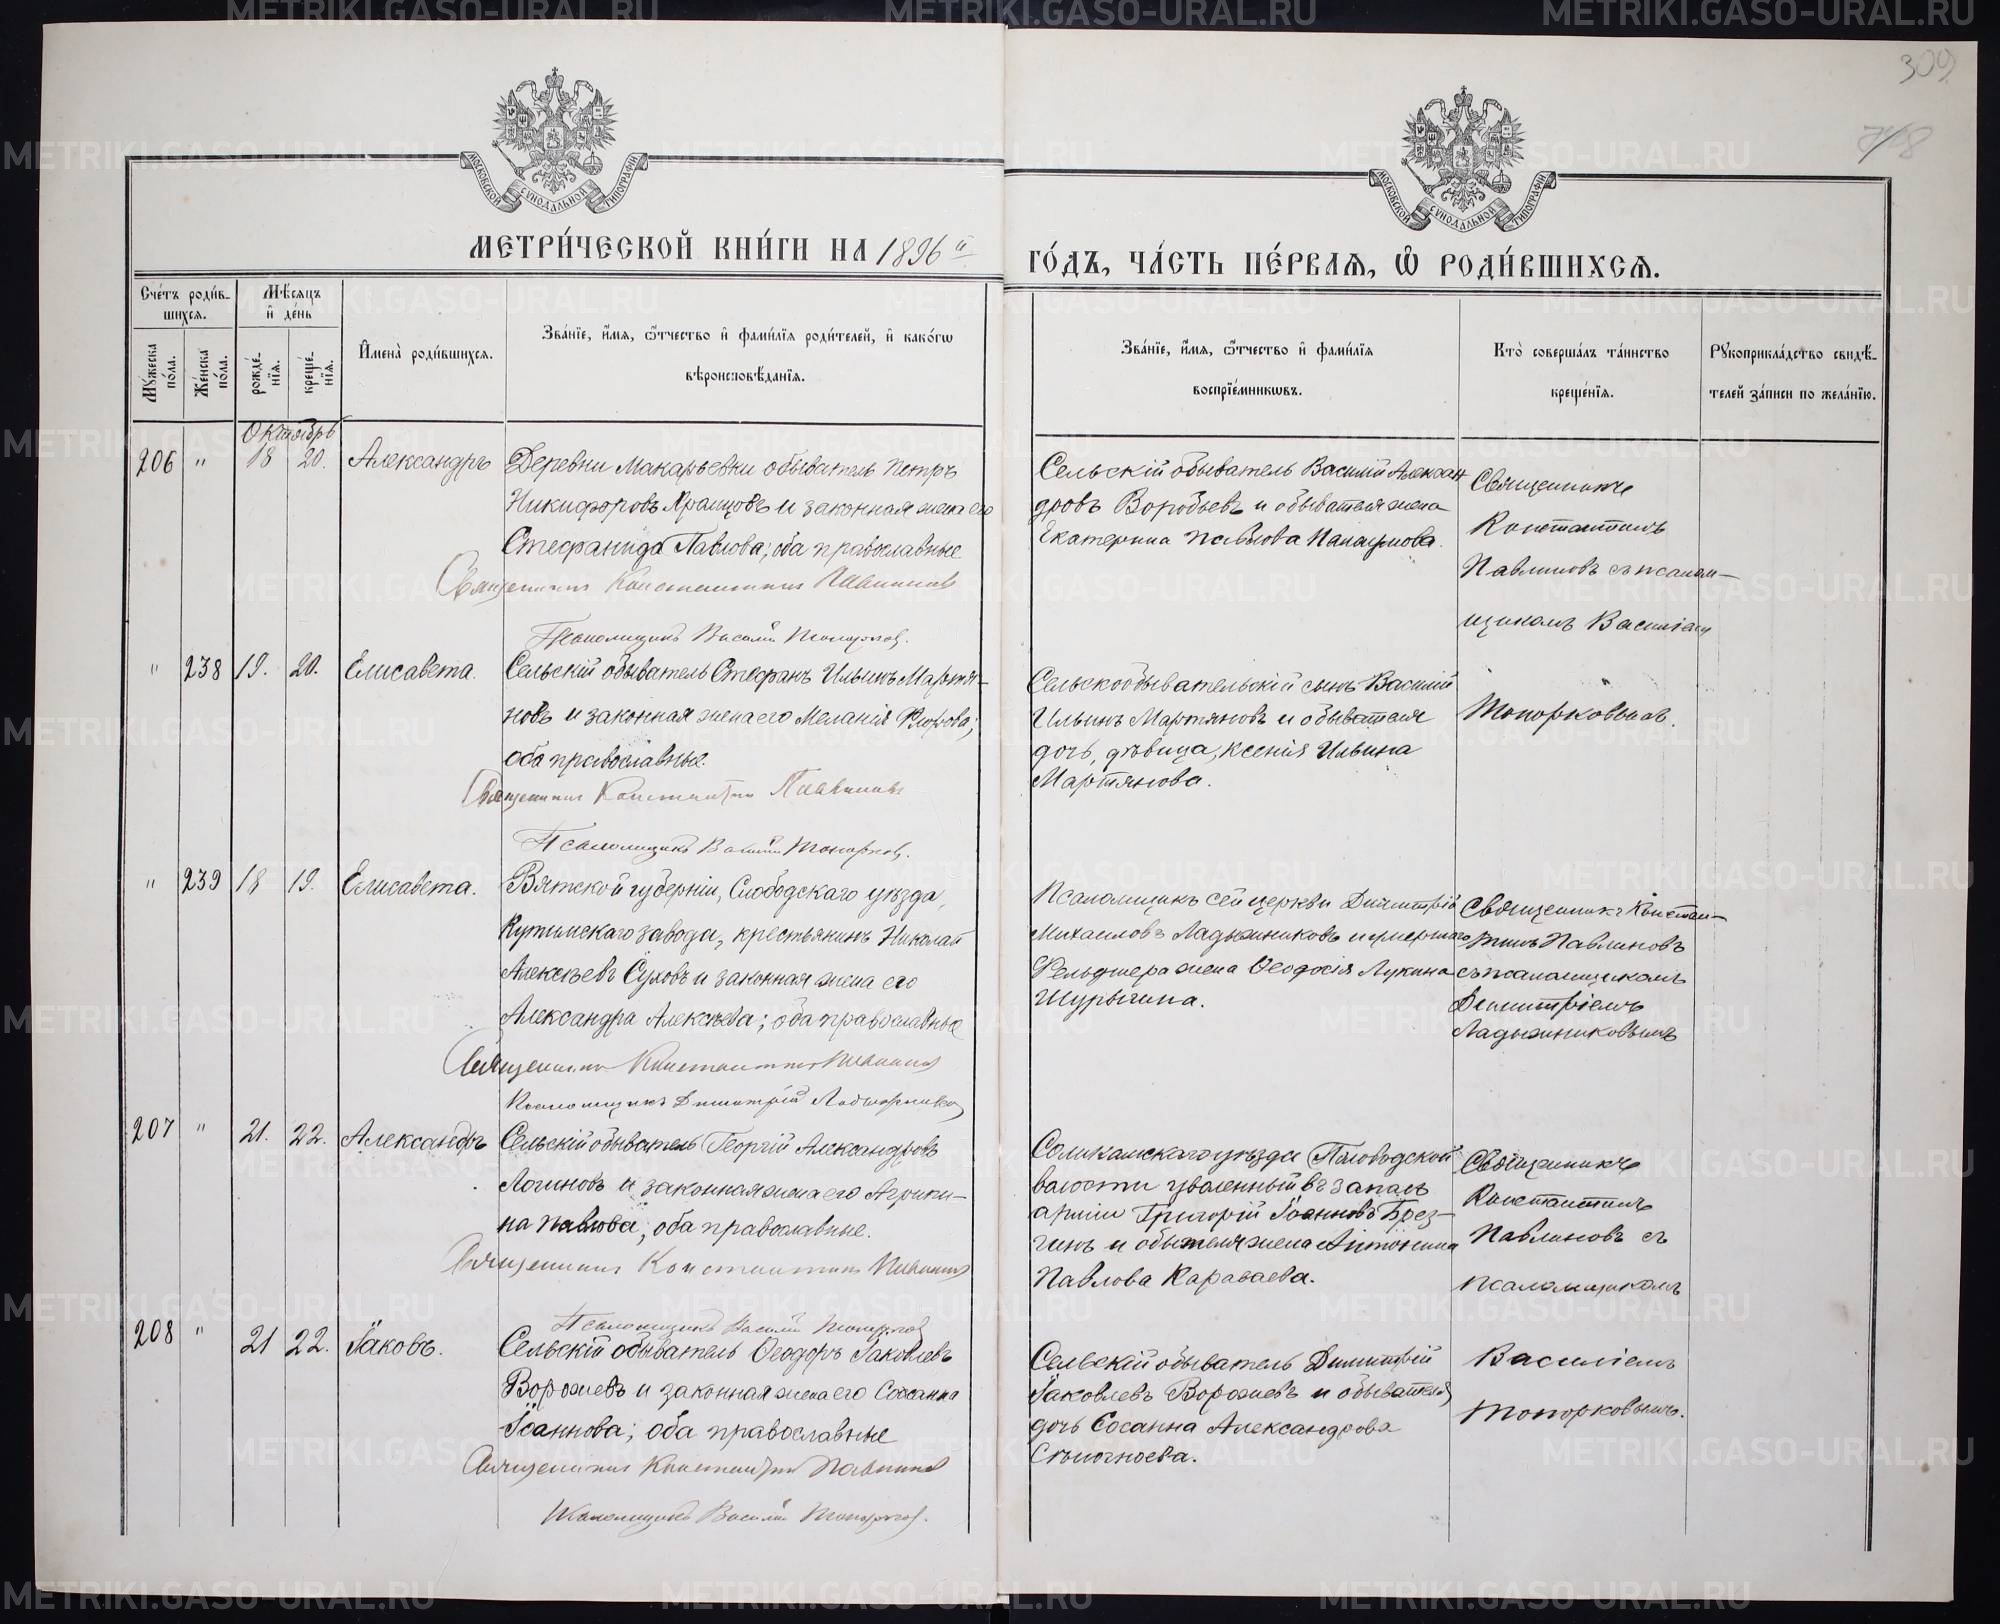 309
МЕТРИ́ЧЕСКОЙ КНИ́ГИ НА 1896 й
ГО́ДЪ, ЧА́СТЬ ПЕ́РВАѦ, Ѡ҆ РОДИ́ВШИХСѦ.
МОСКОВСКОЙ СѴНОДАЛЬНОЙ ТИПОГРАФІИ
МОСКОВСКОЙ СѴНОДАЛЬНОЙ ТИПОГРАФІИ
Сче́тъ роди́в-
шихсѧ.
Мꙋ́жеска по́ла.
Же́нска по́ла.
Мѣ́сѧцъ
и҆ де́нь
рожде́-
нїѧ.
креще́-
нїѧ.
И҆мена̀ роди́вшихсѧ.
Зва́нїе, и҆́мѧ, ѻ҆́тчество и҆ фами́лїѧ роди́телей, и҆ како́гѡ
вѣроисповѣ́данїѧ.
Зва́нїе, и҆́мѧ, ѻ҆́тчество и҆ фами́лїѧ
воспрїе́мникѡвъ.
Кто̀ соверша́лъ та́инство
креще́нїѧ.
Рꙋкоприкла́дство свидѣ́-
телей за́писи по жела́нїю.
Октябрь
206 " 18 20. Александръ
Деревни Макарьевки обыватель Петръ
Никифоровъ и законная жена его
Стефанида Павлова; оба православные
Священникъ Константинъ Павлиновъ
Псаломщикъ Василій Топорковъ.
Сельскій обыватель Василій Алексан
дровъ Воробьевъ и обывателя жена
Екатерина Павлова
Священникъ
Константинъ
Павлиновъ съ псалом-
щикомъ Василіемъ
Топорковымъ.
" 238 19. 20. Елисавета.
Сельскій обыватель Стефанъ Ильинъ Мартя-
новъ и законная жена его Меланія
оба православные.
Священникъ Константинъ Павлиновъ
Псаломщикъ Василій Топорковъ.
Сельскообывательскій сынъ Василій
Ильинъ Мартяновъ и обывателя
дочь, дѣвица, Ксенія Ильина
Мартянова.
" 239 18 19. Елисавета.
Вятской губерніи, Слободскаго уѣзда,
Кутимскаго завода, крестьянинъ Николай
Алексѣевъ Суховъ и законная жена его
Александра Алексѣева; оба православные
Священникъ Константинъ Павлиновъ
Псаломщикъ Димитрій Ладыжниковъ
Псаломщикъ сей церкви Димитрій
Михаиловъ Ладыжниковъ и
Фельдшера жена Ѳеодосія Лукина
Шурыгина.
Священникъ Констан-
тинъ Павлиновъ
съ псаломщикомъ
Димитріемъ
Ладыжниковымъ
207 " 21. 22. Александръ
Сельскій обыватель Георгій Александровъ
Логиновъ и законная жена его Агрипи-
на Павлова; оба православные.
Священникъ Константинъ Павлиновъ
Псаломщикъ Василій Топорковъ
Соликамскаго уѣзда
волости уволенный въ запасъ
арміи Григорій Іоанновъ Брез-
гинъ и обывателя жена Антонина
Павлова Караваева.
Священникъ
Константинъ
Павлиновъ съ
псаломщикомъ
Василіемъ
Топорковымъ.
208 " 21 22. Іаковъ.
Сельскій обыватель Ѳеодоръ Іаковлевъ
Ворожевъ и законная жена его Сосанна
Іоаннова; оба православные
Священникъ Константинъ Павлиновъ
Псаломщикъ Василій Топорковъ.
Сельскій обыватель Димитрій
Іаковлевъ Ворожевъ и обывателя
дочь Сосанна Александрова
METRIKI.GASO-URAL.RU